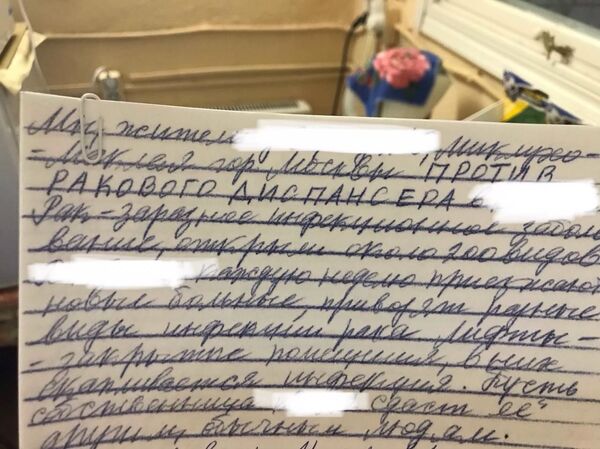 Мы, жители , Миклухо-
-Маклая гор Москвы ПРОТИВ
РАКОВОГО ДИСПАНСЕРА в
Рак-заразное инфекционное заболе
вание, открыли около 200 видов
каждую неделю приезжают
новые больные, привозят разные
виды инфекций рака Лифты-
- закрытые помещения, в них
скапливается инфекция. Пусть
собственница сдаст её"
другим, обычным людям.